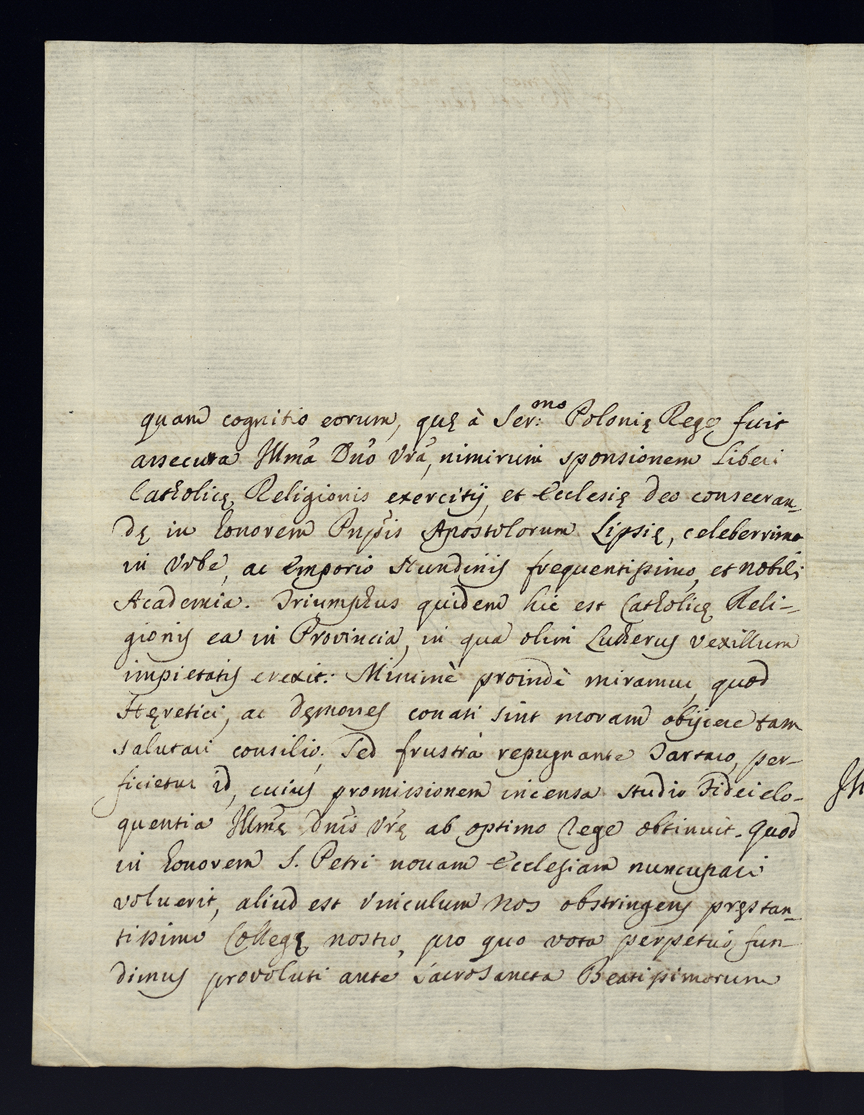 quam cognitio eorum, quę à Ser:mo Polonię Rege fuit
assecuta Illma Dno Vra, nimirum sponsionem liberi
Catholicę Religionis exercitij, et Ecclesię Deo consecran-
dę in honorem Apostolorum Lipsię, celeberrima
in Vrbe, ac Emporio Nundinis frequentissimo, et nobili
Academia. Triumphus quidem hic est Catholicę Reli-
gionis ea in Provincia, in qua olim Lutherus vexillum
impietatis erexit: Minimè proindè miramur, quod
Hęretici, ac Dęmones conati sint moram obijcere tam
salutari consilio; Sed frustrà repugnante Tartaro, per-
ficietur id, cuius promissionem incensa studio Fidei elo-
quentia Illmę Dnis Vrę ab optimo Rege obtinuit. Quod
in honorem S. Petri novam Ecclesiam nuncupari
voluerit, aliud est vinculum nos obstringens pręstan-
tissimo Collegę nostro, pro quo vota perpetuò fun-
dimus provoluti ante Sacrosancta Beatissimorum